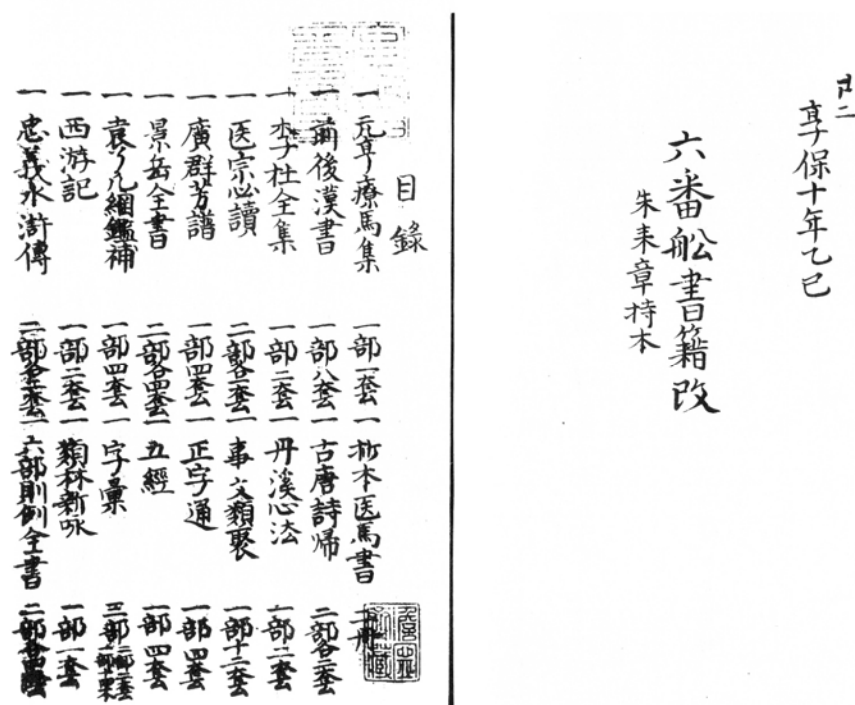 享保十年乙巳
六番舩書籍改
朱来章持本
目録
一 元亨療馬集 一部一套
一 抄本医馬書
一 前後漢書 一部八套
一 古唐詩帰 二部各二套
一 李杜全集 一部二套
一 丹溪心法 一部二套
一 医宗必讀 二部各一套
一 事文類聚 一部十二套
一 廣群芳譜 一部四套
一 正字通 一部四套
一 景岳全書 二部各四套
一 五經 一部四套
一 袁了凡綱鑑補 一部四套
一 字彙 三部
一 西游記 一部二套
一 類林新咏 一部一套
一 忠義水滸傳 二部各二套
一 六部則例全書 二部各四套